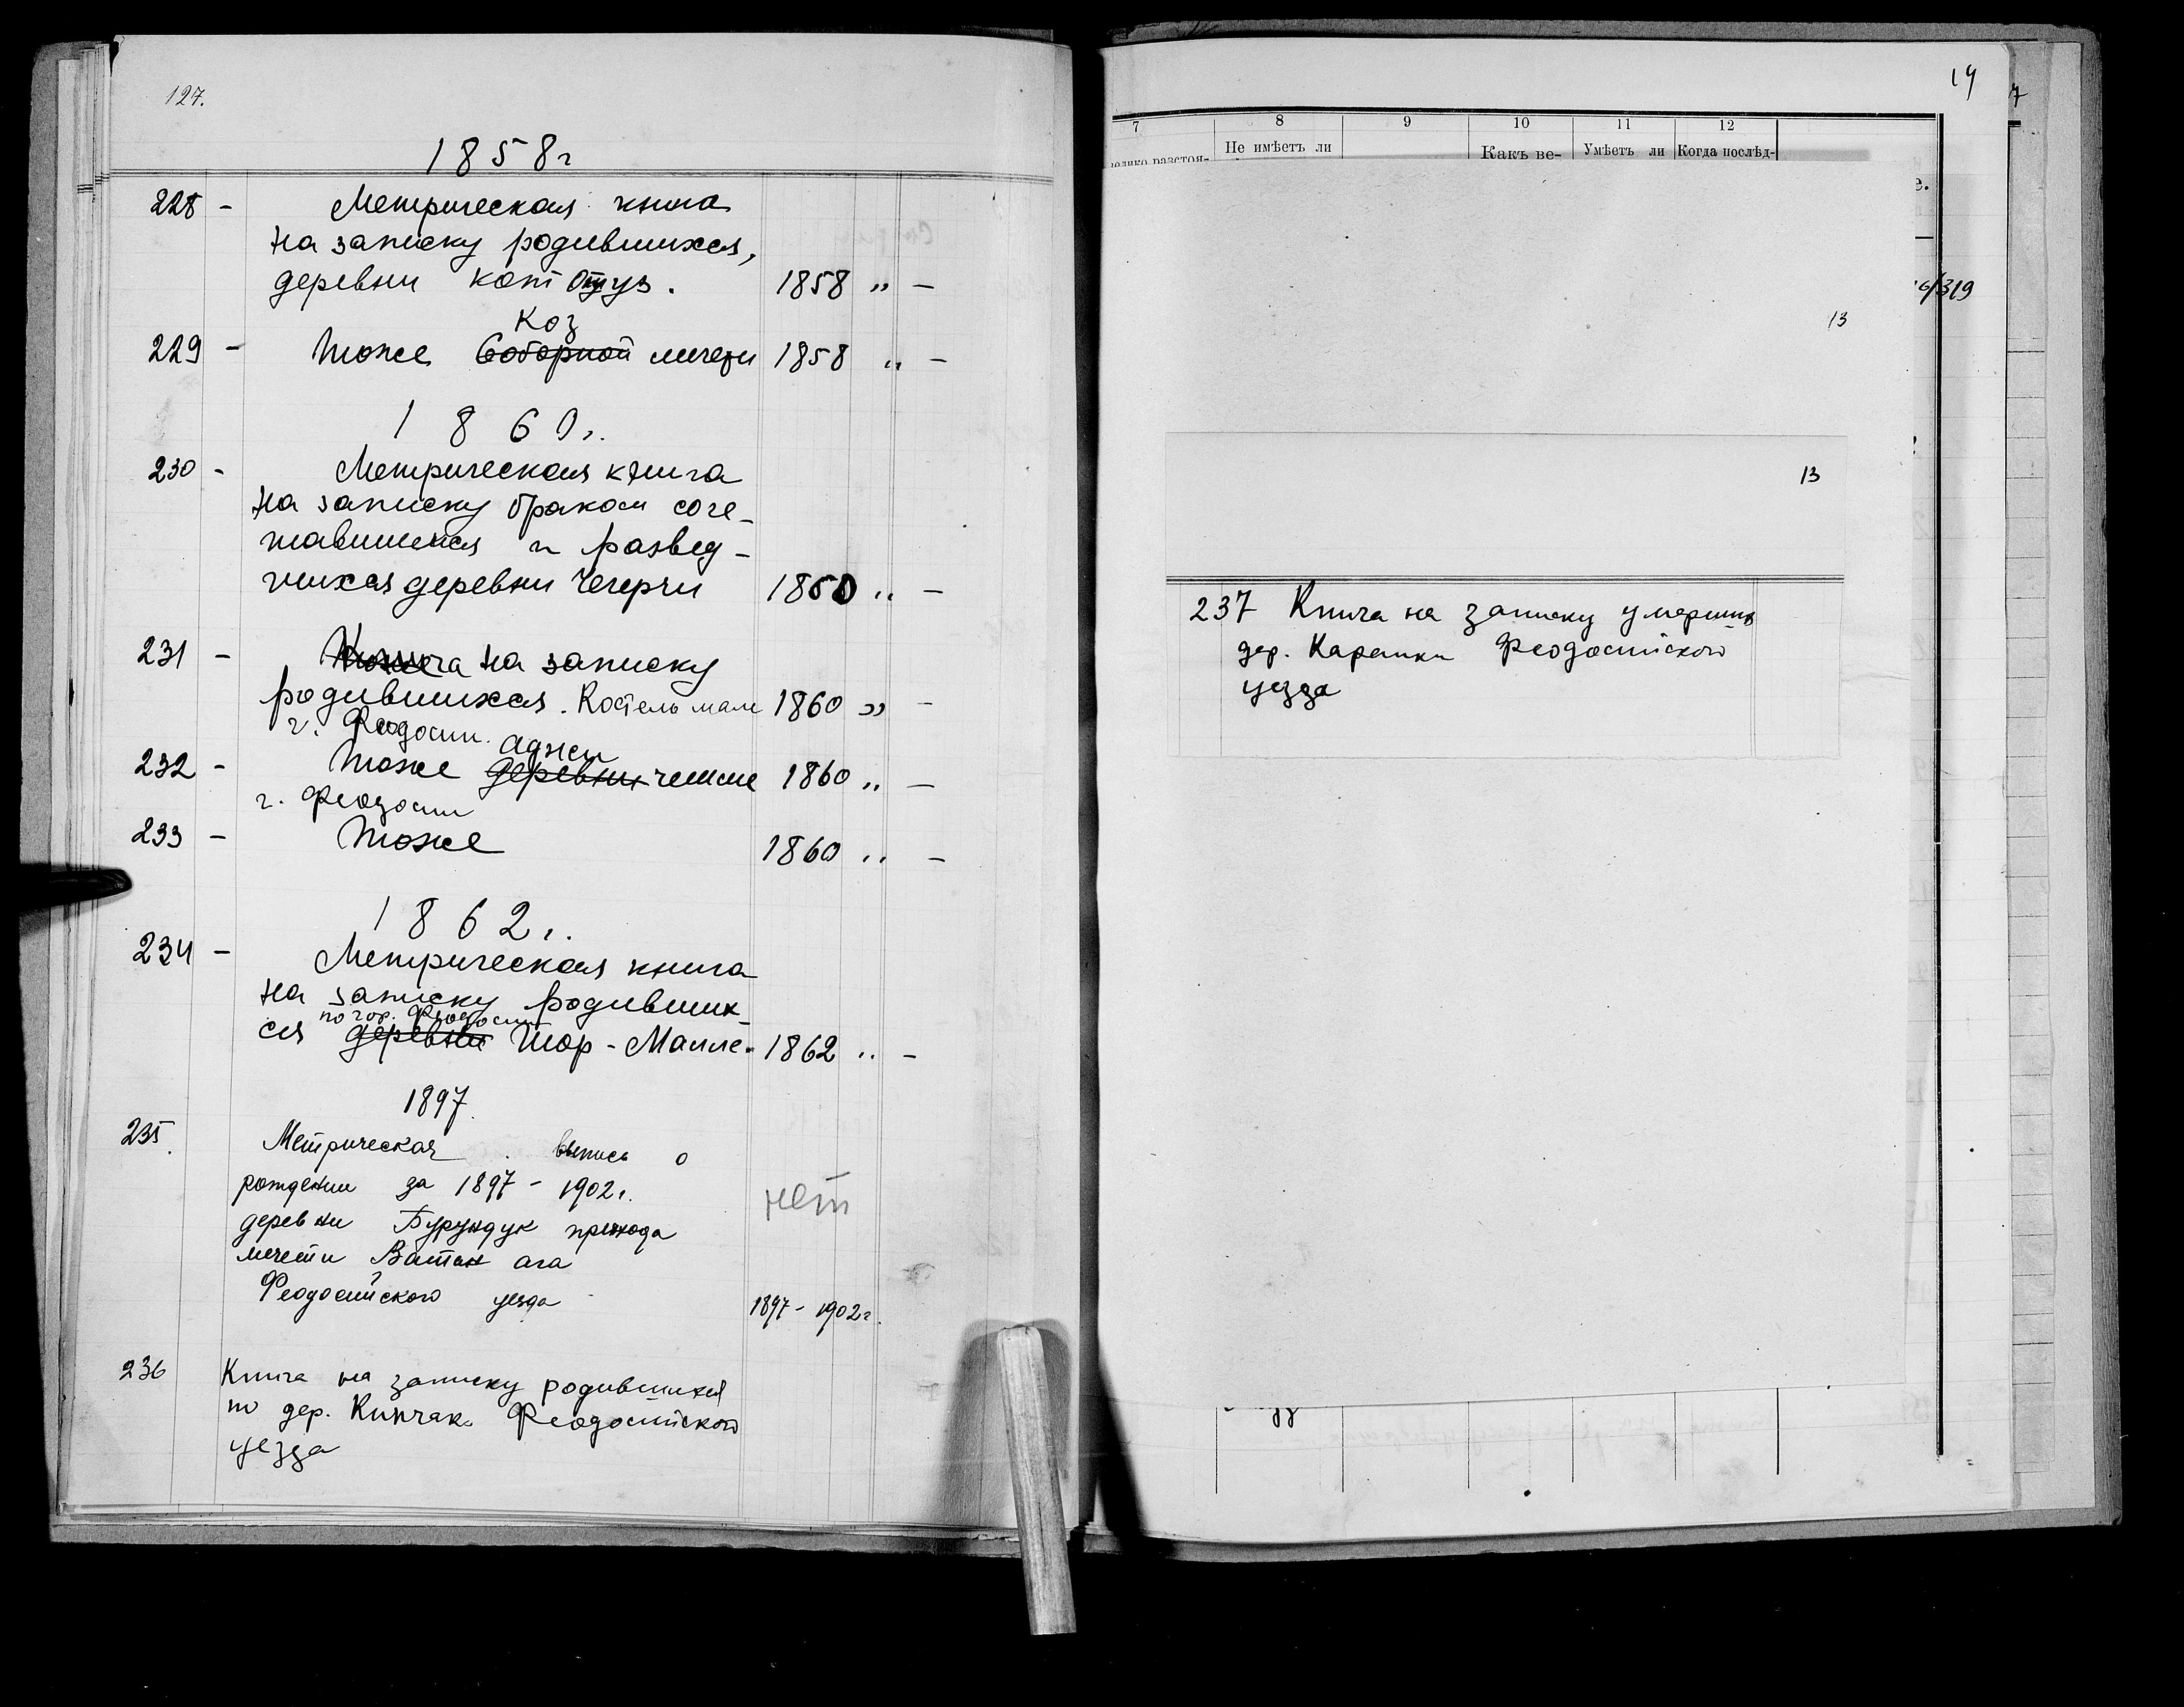 127.
1858 г
228 - Метрическая книга
на записку родившихся,
деревни кот Отуз. 1858 " -
Коз
229 - тоже Соборной мечети 1858 " -
1860 г.
230 - Метрическая книга
на записку браком соче-
тавшихся и развед-
шихся деревни Чегерчи 1860 " -
231 - Книга на записку
родившихся. Костель мале 1860 " -
г. Феодосии.
Аджи
232 - тоже деревни чешме 1860 " -
г. Феодосии
233 - тоже 1860 " -
1862 г.
234 - Метрическая книга
на записку родивших-
по гор. Феодосии
ся деревни Шор-Малле- 1862 " -
1897.
235. Метрическая выпись о
рождении за 1897 - 1902 г. нет
деревни Бурундук прихода
мечети Ватан ага
Феодосийского уезда 1897 - 1902 г.
236 Книга на записку родившихся
по дер. Кипчак Феодосийского
уезда
14
7
7 8 9 10 11 12
Не имѣетъ ли Какъ ве- Умѣетъ ли Когда послѣд-
е.
6/319
13
13
237 Книга на записку умерших
дер. Карашки Феодосийского
уезда